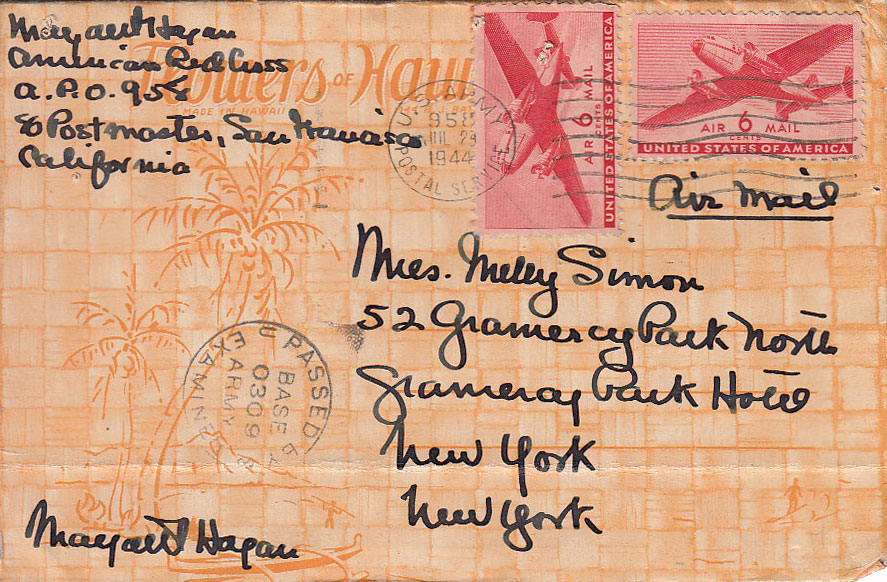 Margaret Hagan
American Red Cross
A.P.O. 958
c/o Postmaster, San Francisco
California
Flowers of Hawaii
MADE IN HAWAII
U.S. ARMY
958
JUL 29
1944
POSTAL SERVICE
AIR 6 MAIL
CENTS
UNITED STATES OF AMERICA
AIR 6 MAIL
CENTS
UNITED STATES OF AMERICA
Air Mail
Mrs. Melly Simon
52 Gramercy Park North
Gramercy Park Hotel
New York
New York
PASSED BY
BASE
0309
ARMY
EXAMINER
Margaret Hagan